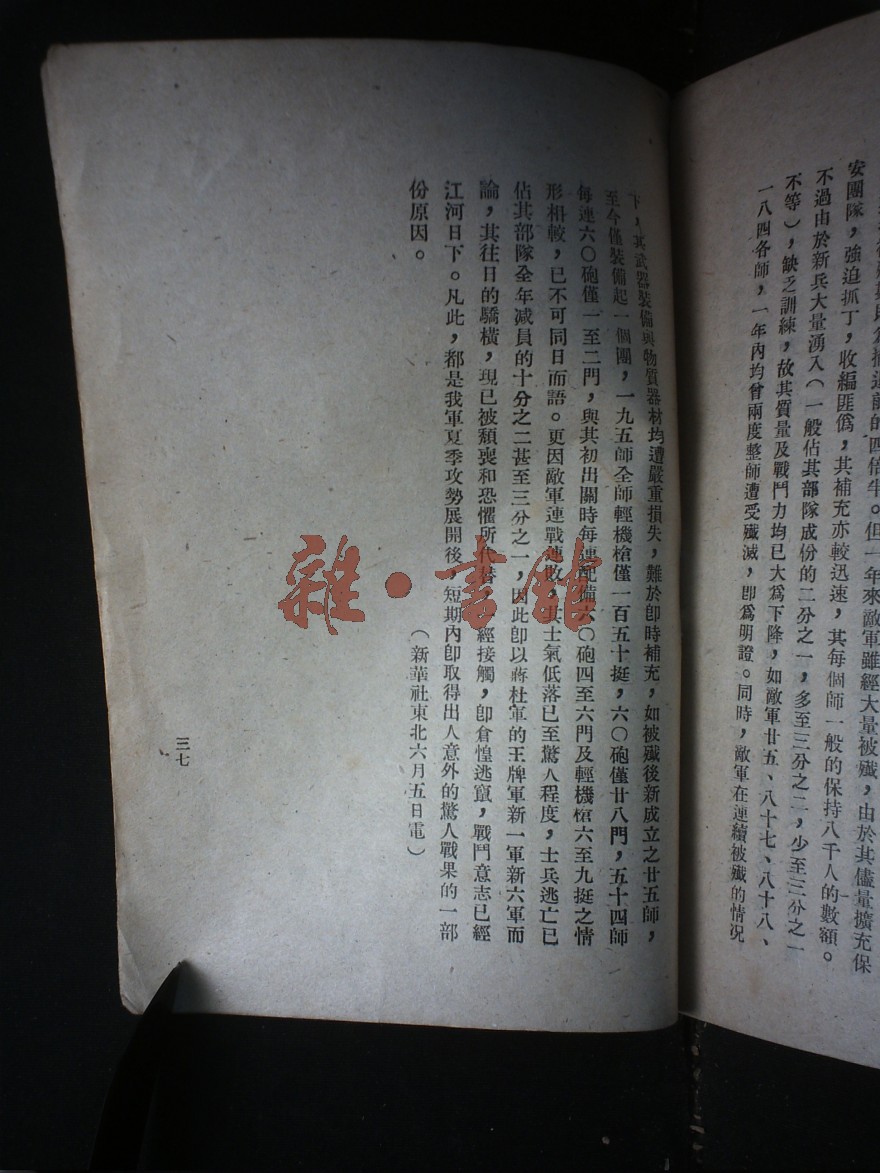 安團隊，強迫抓丁，收編匪僞，其補充亦較迅速，其每個師一般的保持八千人的數額。
不過由於新兵大量湧入（一般佔其部隊成份的二分之一，多至三分之二，少至三分之一
不等），缺乏訓練，故其質量及戰鬥力均已大爲下降，如敵軍廿五、八十七、八十八、
一八四各師，一年內均曾兩度整師遭受殲滅，卽爲明證。同時，敵軍在連續被殲的情况
下，其武器裝備與物質器材均遭嚴重損失，難於卽時補充，如被殲後新成立之廿五師，
至今僅裝備起一個團，一九五師全師輕機槍僅一百五十挺，六〇砲僅廿八門，五十四師
每連六〇砲僅一至二門，與其初出關時每連配備六〇砲四至六門及輕機槍六至九挺之情
形相較，已不可同日而語。更因敵軍連戰連敗，其士氣低落已至驚人程度，士兵逃亡已
佔其部隊全年减員的十分之二甚至三分之一，因此卽以蔣杜軍的王牌軍新一軍新六軍而
論，其往日的驕橫，現已被頹喪和恐懼所代替，經接觸，卽倉惶逃竄，戰鬥意志已經
江河日下。凡此，都是我軍夏季攻勢展開後，短期內卽取得出人意外的驚人戰果的一部
份原因。
（新華社東北六月五日電）
三七
雜·書館